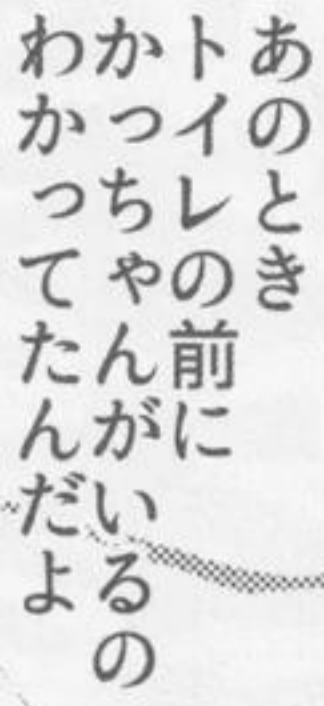 あのとき
トイレの前に
かっちゃんがいるの
わかってたんだよ